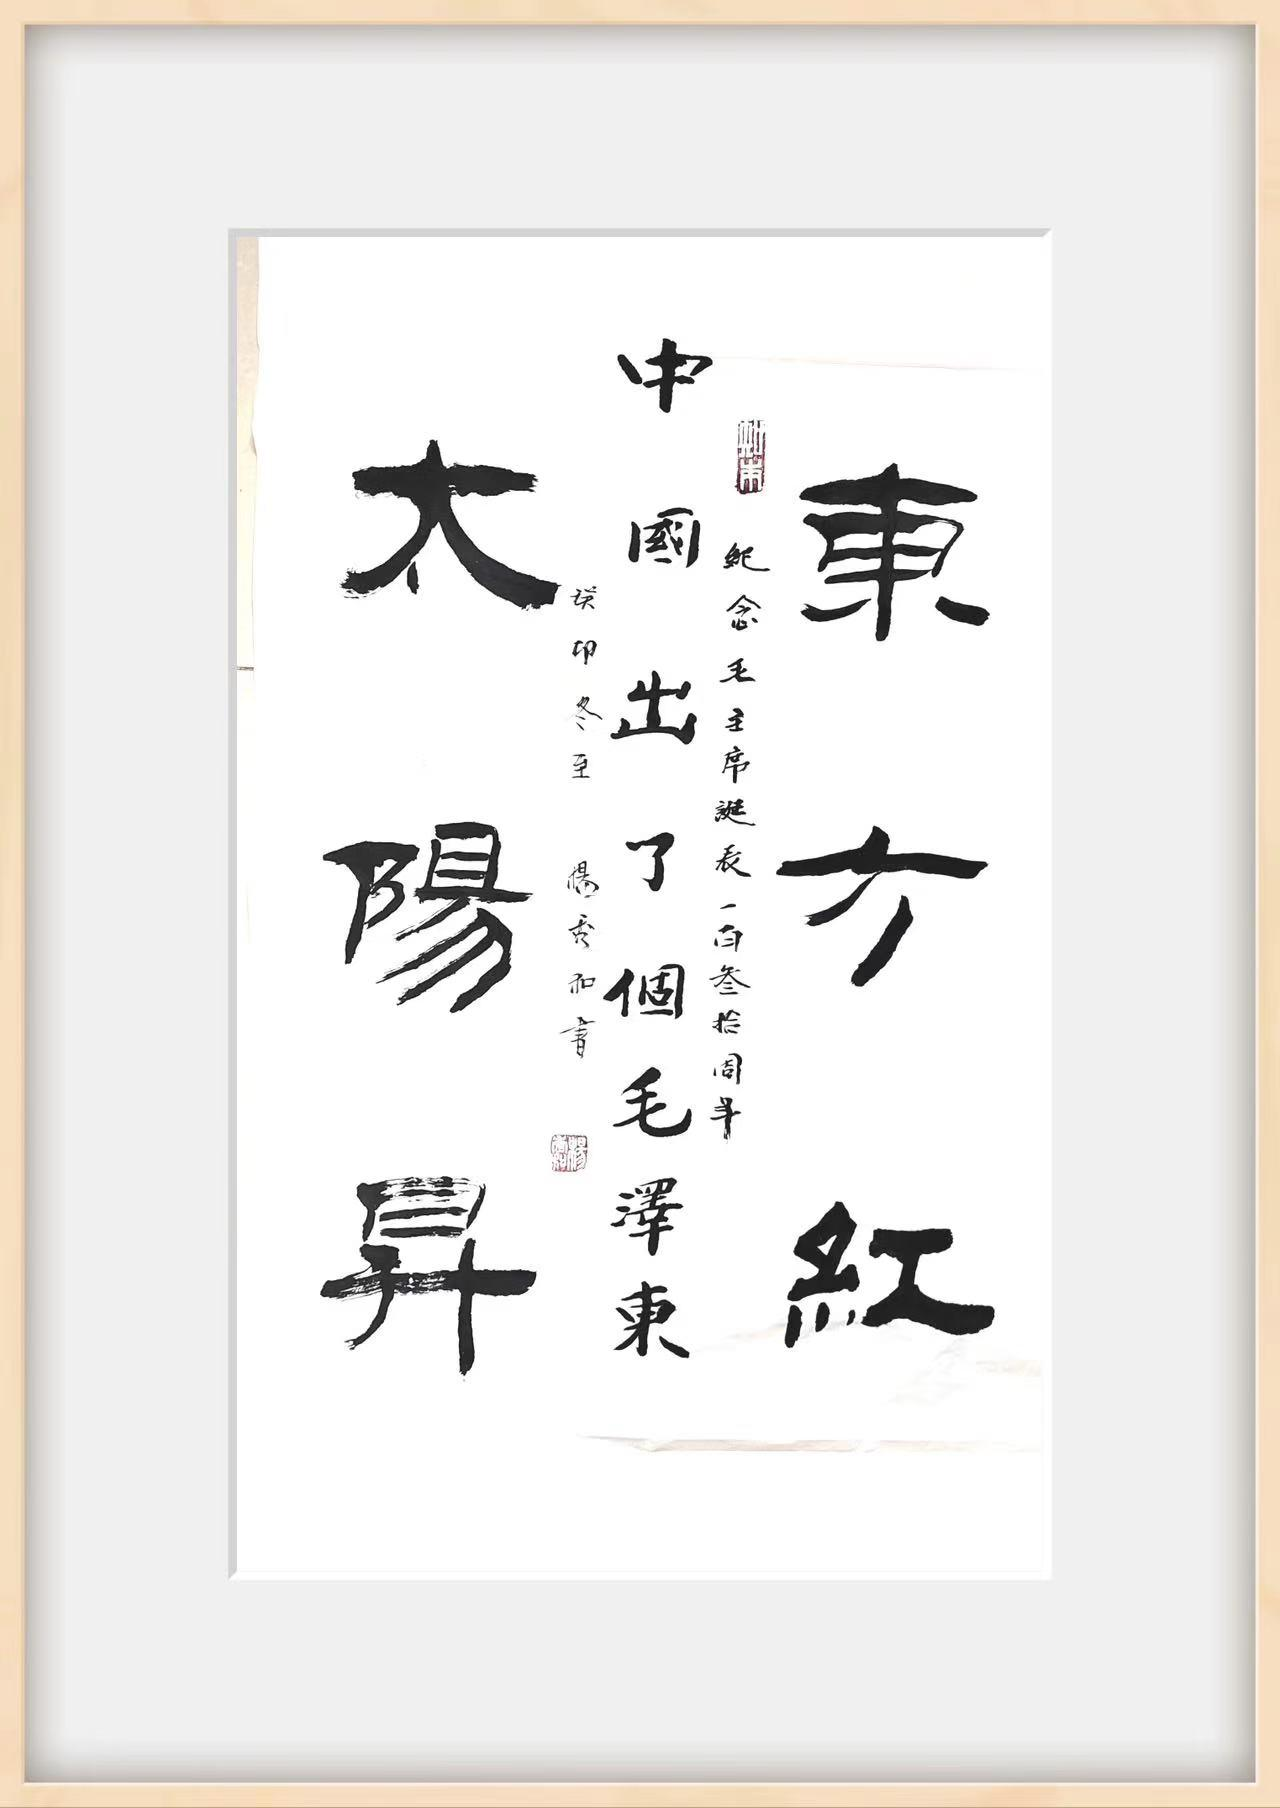 東方紅
紀念毛主席誕辰一百叁拾周年
中國出了個毛澤東
癸卯冬至 楊秀和書
太陽昇